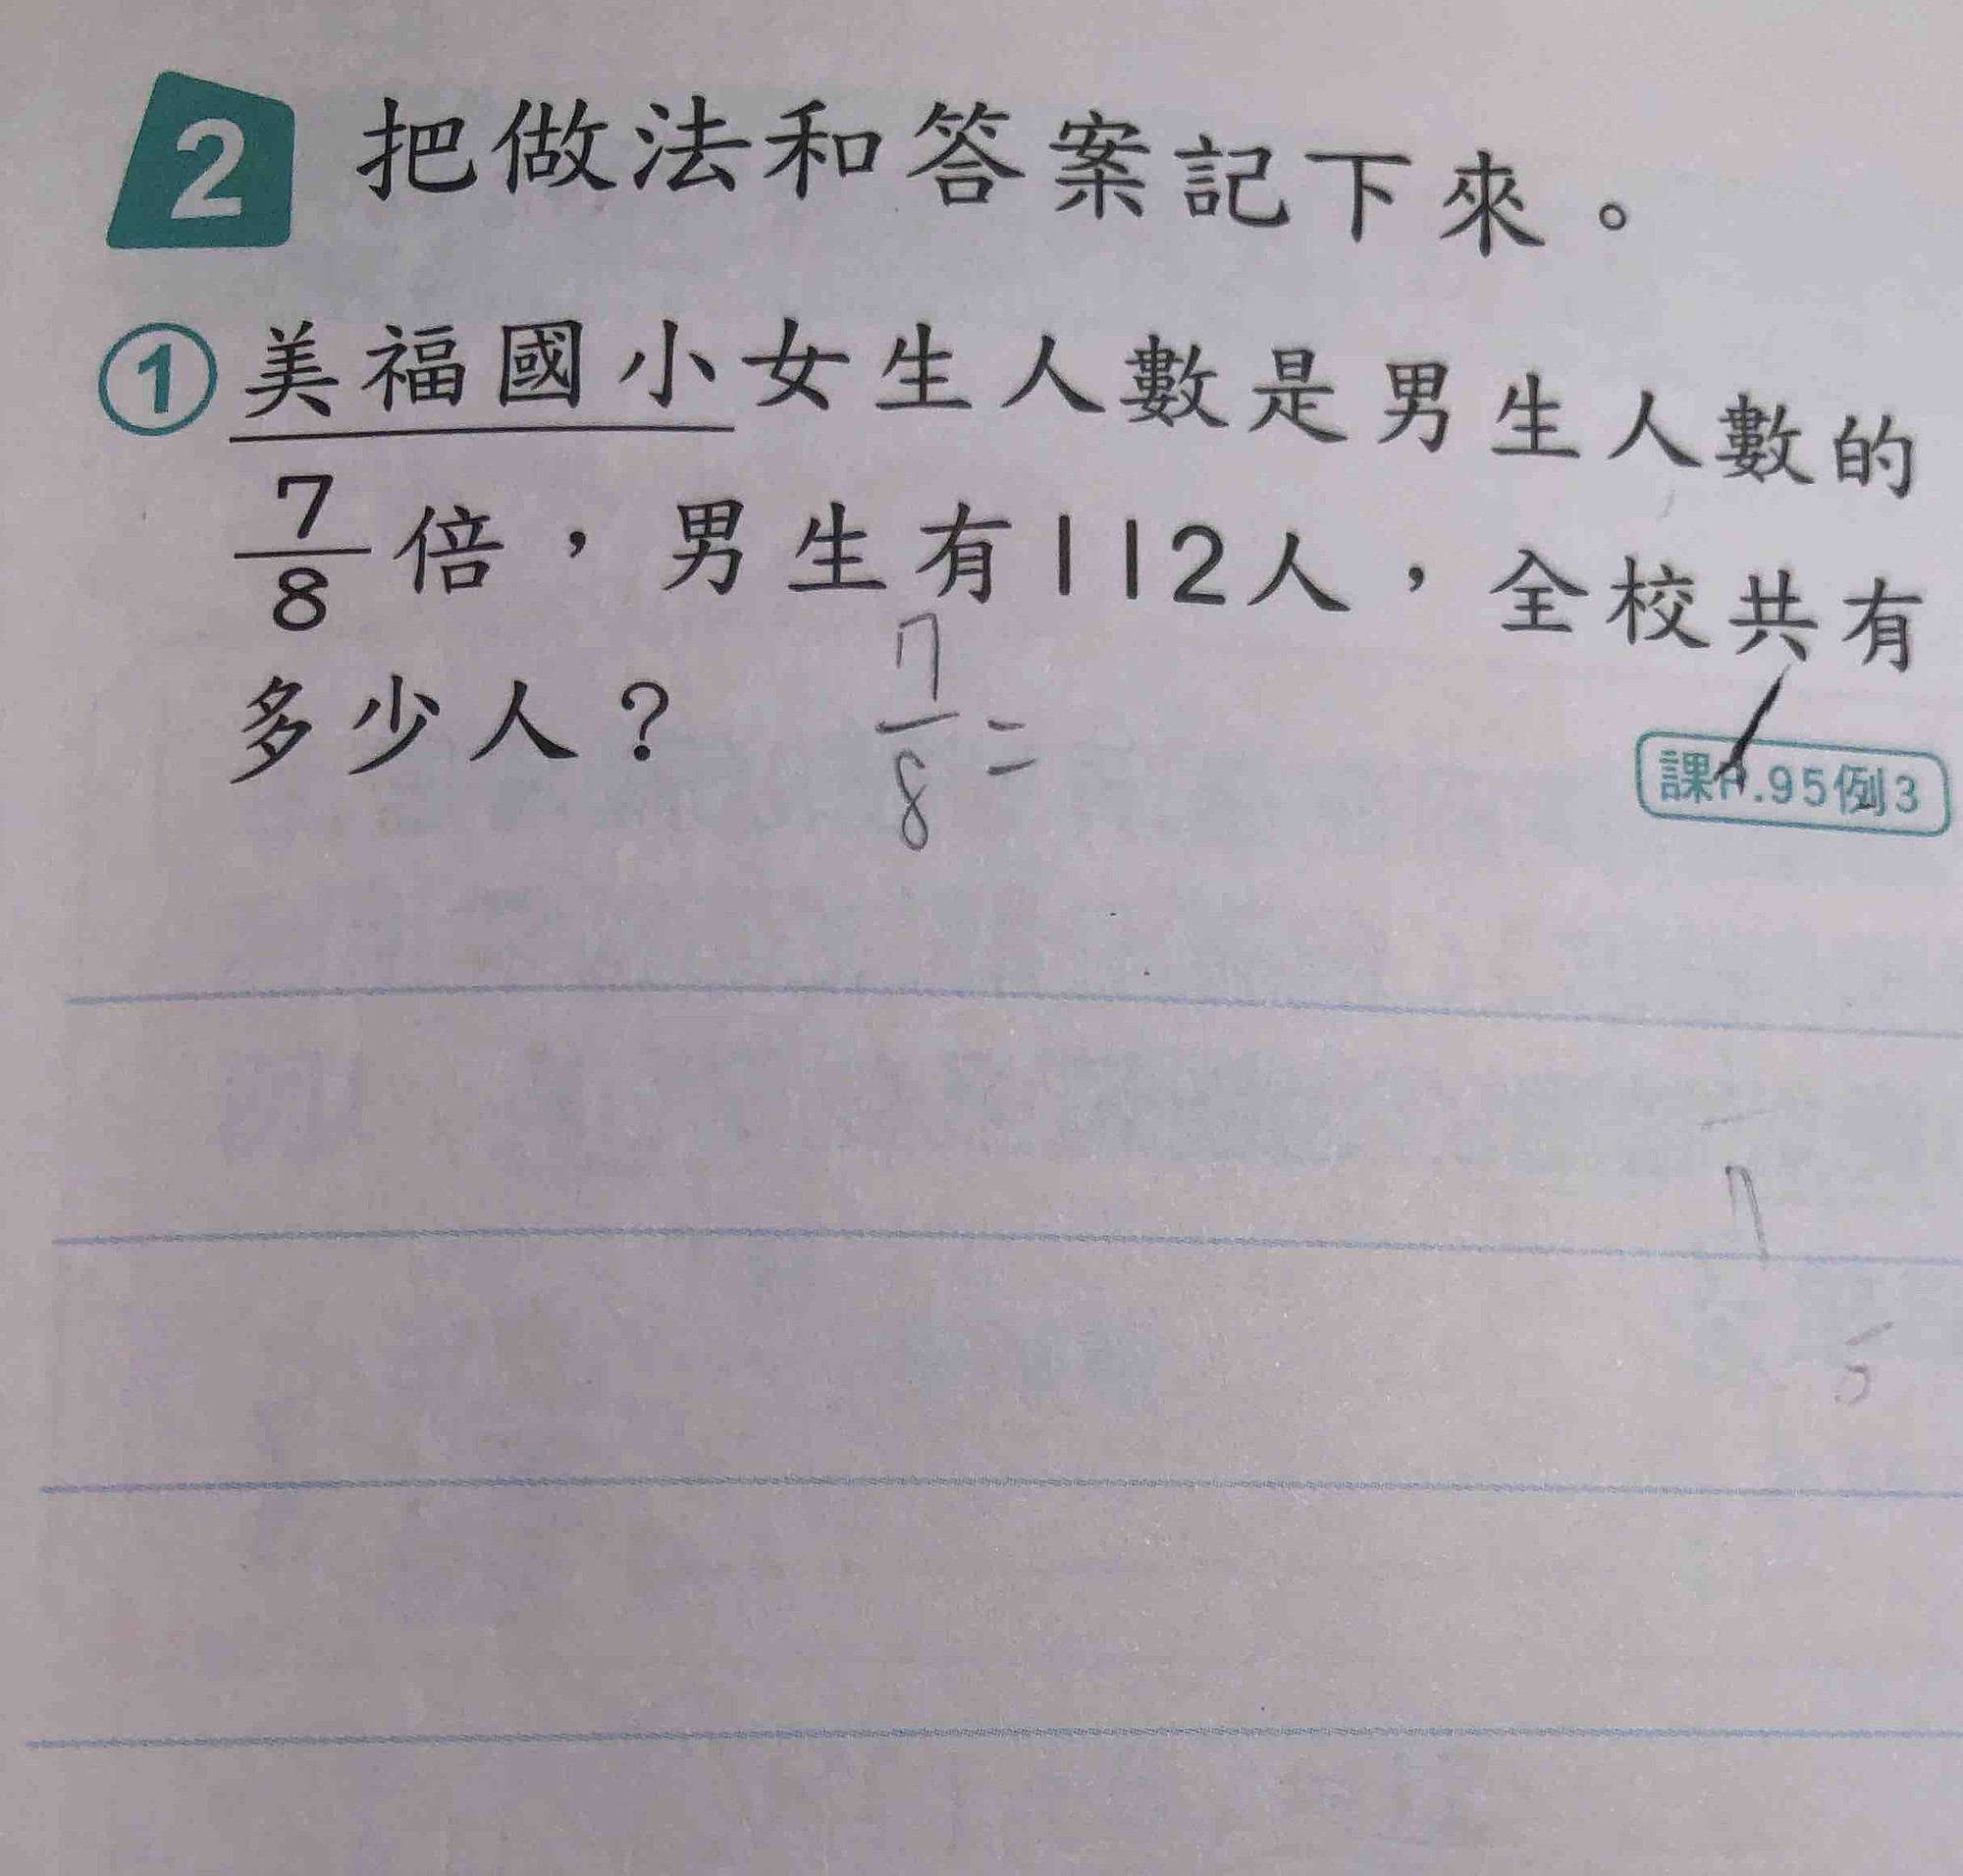 2 把做法和答案記下來。
① 美福國小女生人數是男生人數的
7/8倍，男生有112人，全校共有
多少人？
7/8=
課P.95例3
7